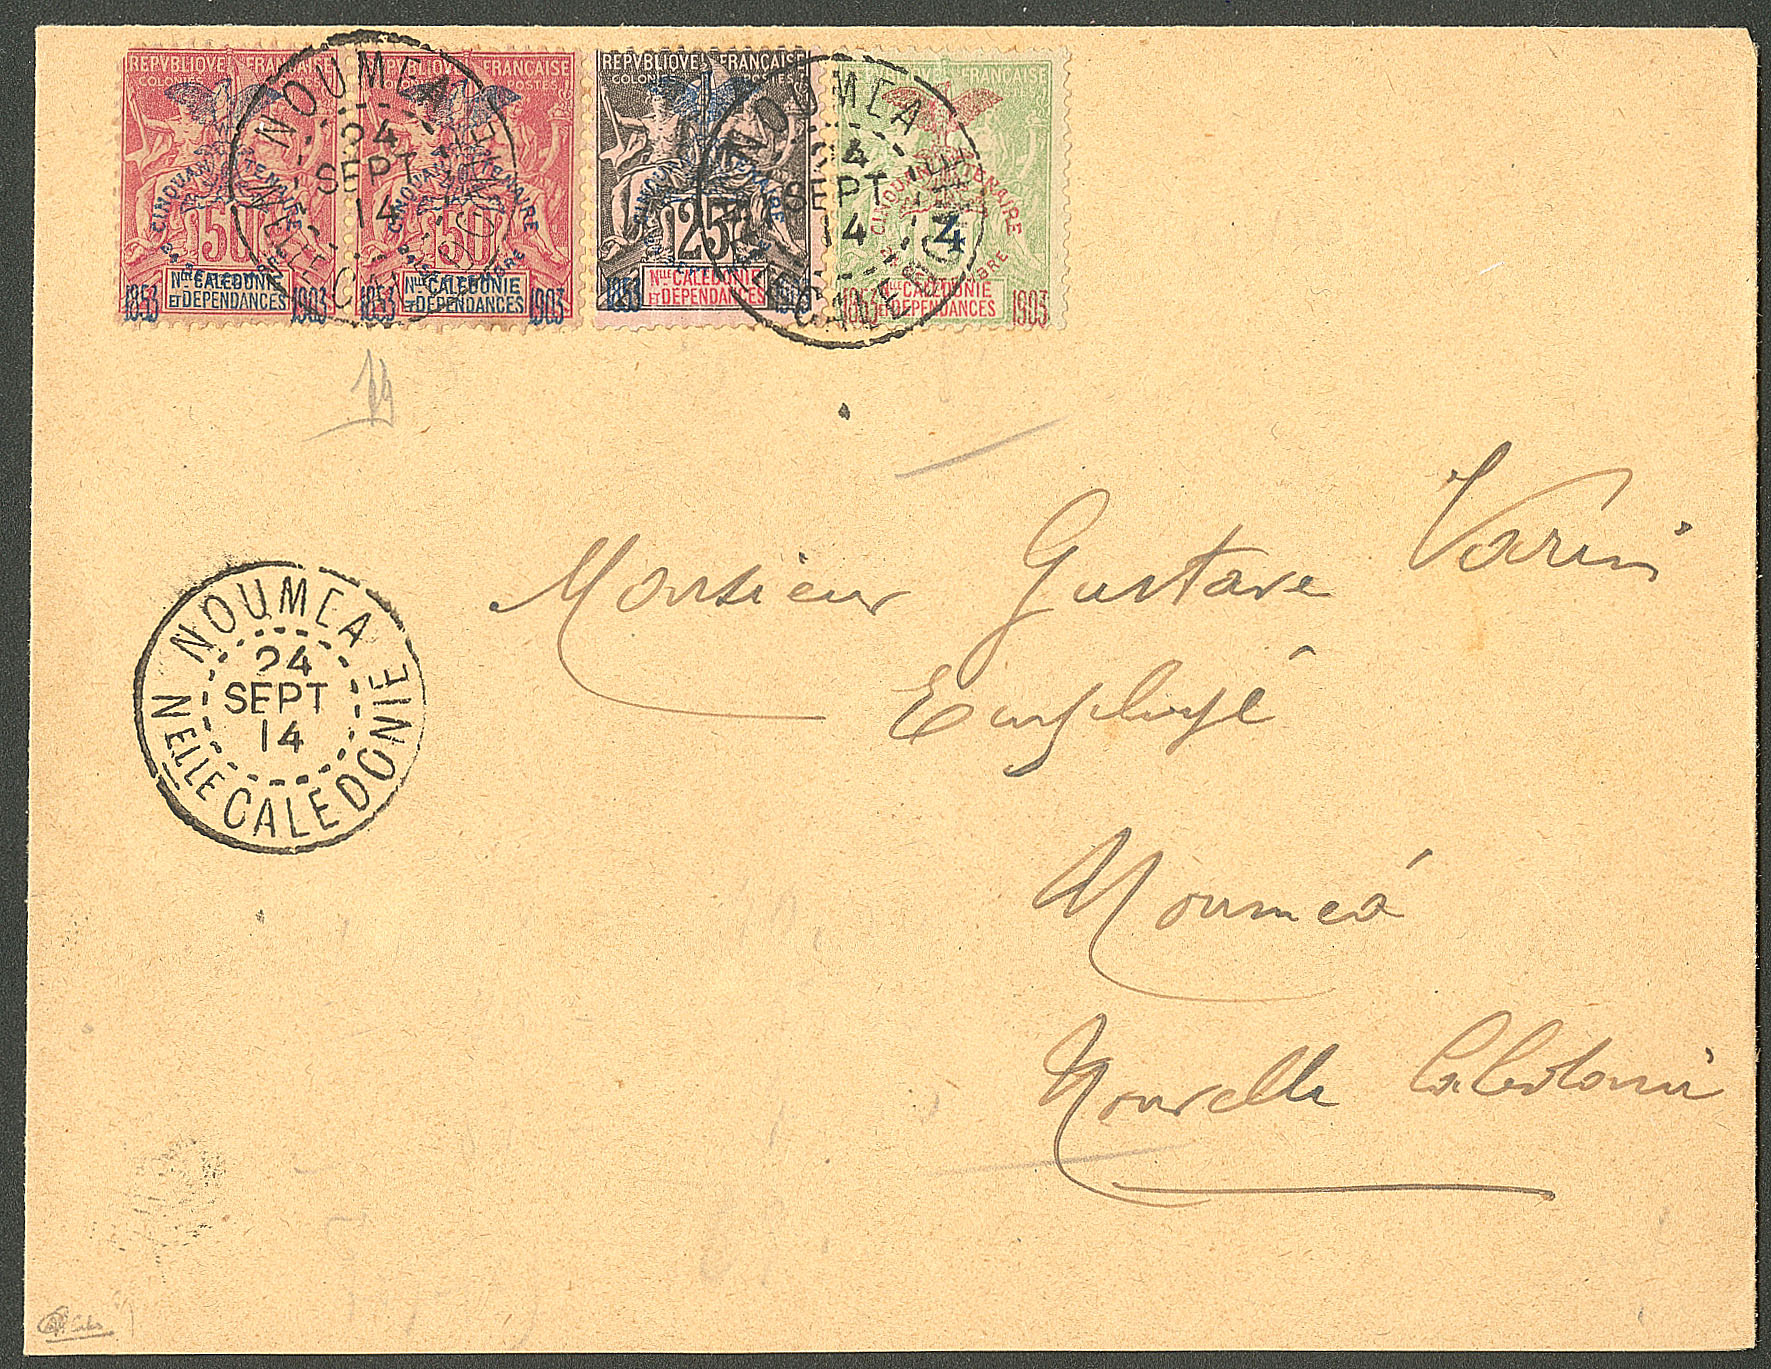 REPVBLIQVE FRANÇAISE
COLONIES POSTES
CINQUANTENAIRE
24 SEPTEMBRE
50
NLLE CALEDONIE
ET DEPENDANCES
1853 1903
REPVBLIQVE FRANÇAISE
COLONIES POSTES
CINQUANTENAIRE
24 SEPTEMBRE
50
NLLE CALEDONIE
ET DEPENDANCES
1853 1903
REPVBLIQVE FRANÇAISE
COLONIES POSTES
CINQUANTENAIRE
24 SEPTEMBRE
25
NLLE CALEDONIE
ET DEPENDANCES
1853 1903
REPVBLIQVE FRANÇAISE
CINQUANTENAIRE
24 SEPTEMBRE
4
NLLE CALEDONIE
ET DEPENDANCES
1853 1903
NOUMEA
24
SEPT
14
NELLE CALEDONIE
NOUMEA
24
SEPT
14
NELLE CALEDONIE
Monsieur Gustave Varin
Employé
Nouméa
Nouvelle Calédonie
NOUMEA
24
SEPT
14
NELLE CALEDONIE